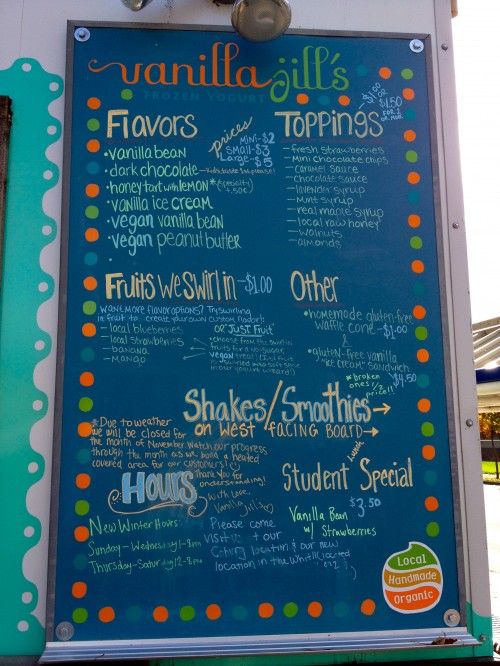 vanilla jill's
FROZEN YOGURT
Flavors
• vanilla bean
• dark chocolate
• honey tart with lemon * (specialty)
+.50¢
• vanilla ice cream
• vegan vanilla bean
• vegan peanut butter
•
prices
mini-$2
small-$3
Large-$5
Toppings
$1.50
FOR 2
OR MORE
- fresh strawberries
- mini chocolate chips
- caramel sauce
- chocolate sauce
- lavender syrup
- mint syrup
- real maple syrup
- local raw honey
- walnuts
- almonds
Fruits we swirl in -$1.00
want more flavor options? Try swirling
in fruit to create your own custom flavor!
- local blueberries
- local strawberries
- banana
- mango
OR "JUST FRUIT"
Other
• homemade gluten-free
waffle cone - $1.00
&
• gluten-free vanilla
"ice cream" sandwich
$4.50
* broken
ones 1/2
price!!
Shakes/Smoothies →
on West facing Board →
* Due to weather
we will be closed for
the month of November. Watch our progress
through the month as we build a heated
covered area for our customers!
Thank You for
understanding!
With love,
Vanilla Jill's
Hours
New Winter Hours:
Sunday - Wednesday 1-8pm
Thursday - Saturday 12-8pm
Please come
visit us at our
location & our new
location in the
Student Lunch Special
$3.50
Vanilla Bean
w/ Strawberries
Local
Handmade
Organic